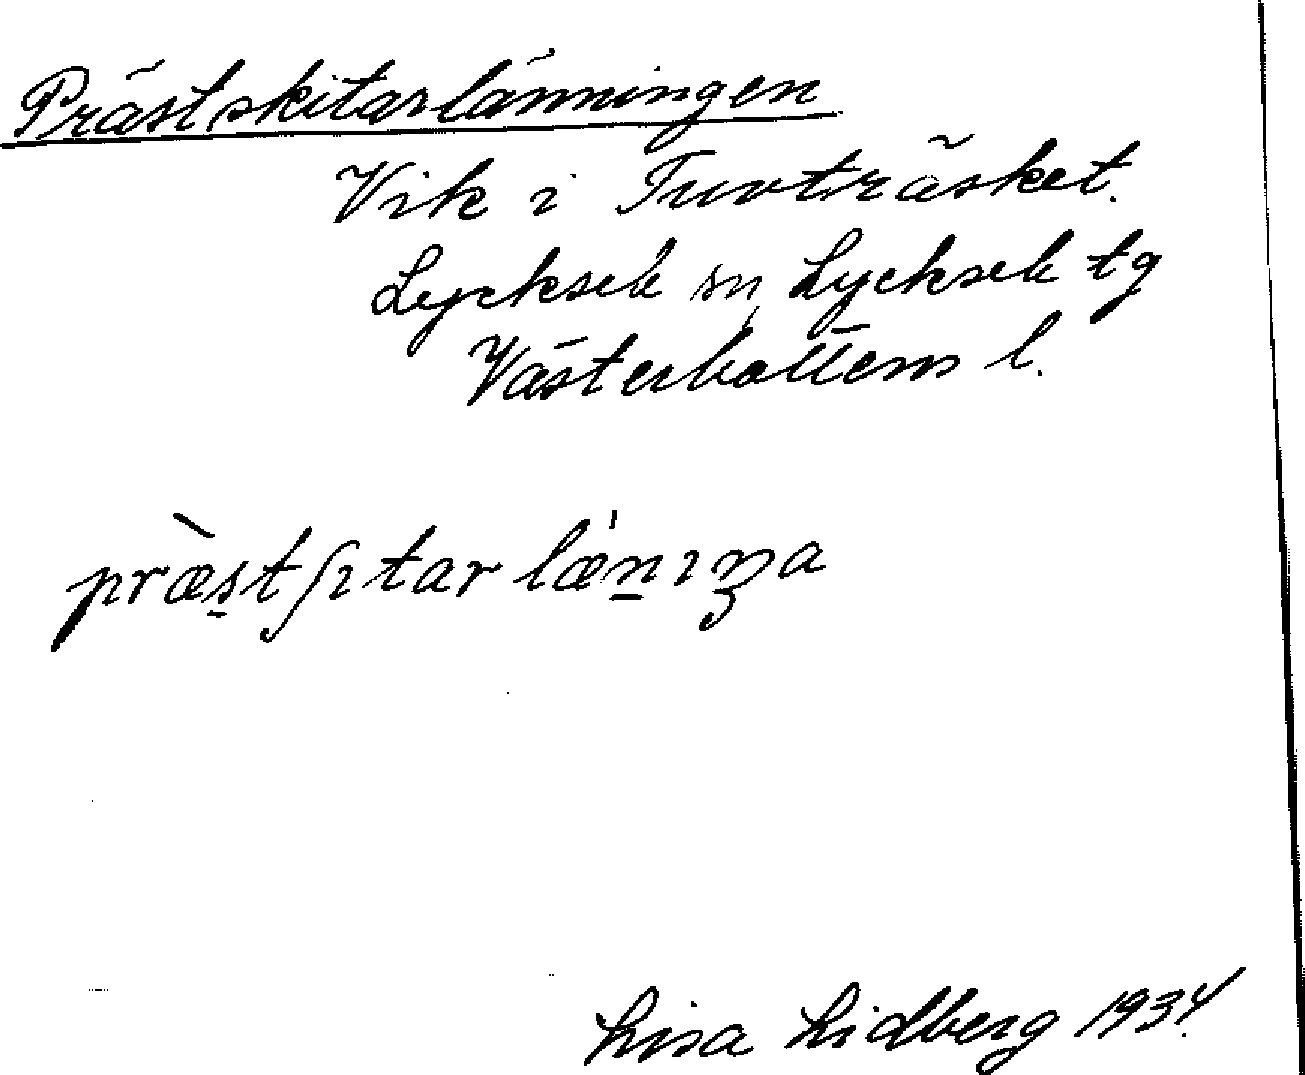 Prästskitarlänningen
Vik i Tuvträsket.
Lycksele sn, Lycksele tg
Västerbottens l.
præstʃıtarlænıŋa
Lisa Lidberg 1934.